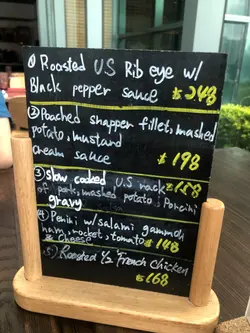 ① Roosted US Rib eye w/
Black pepper sauce $248
② Poached snapper fillet, mashed
potato, mustard
cream sauce $198
③ Slow cooked U.S rack $158
of pork, mashed potato, Porcini
gravy
④ Penini w/ salami gammon
ham, rocket, tomato $148
& cheese
⑤ Roosted ½ French Chicken
$168